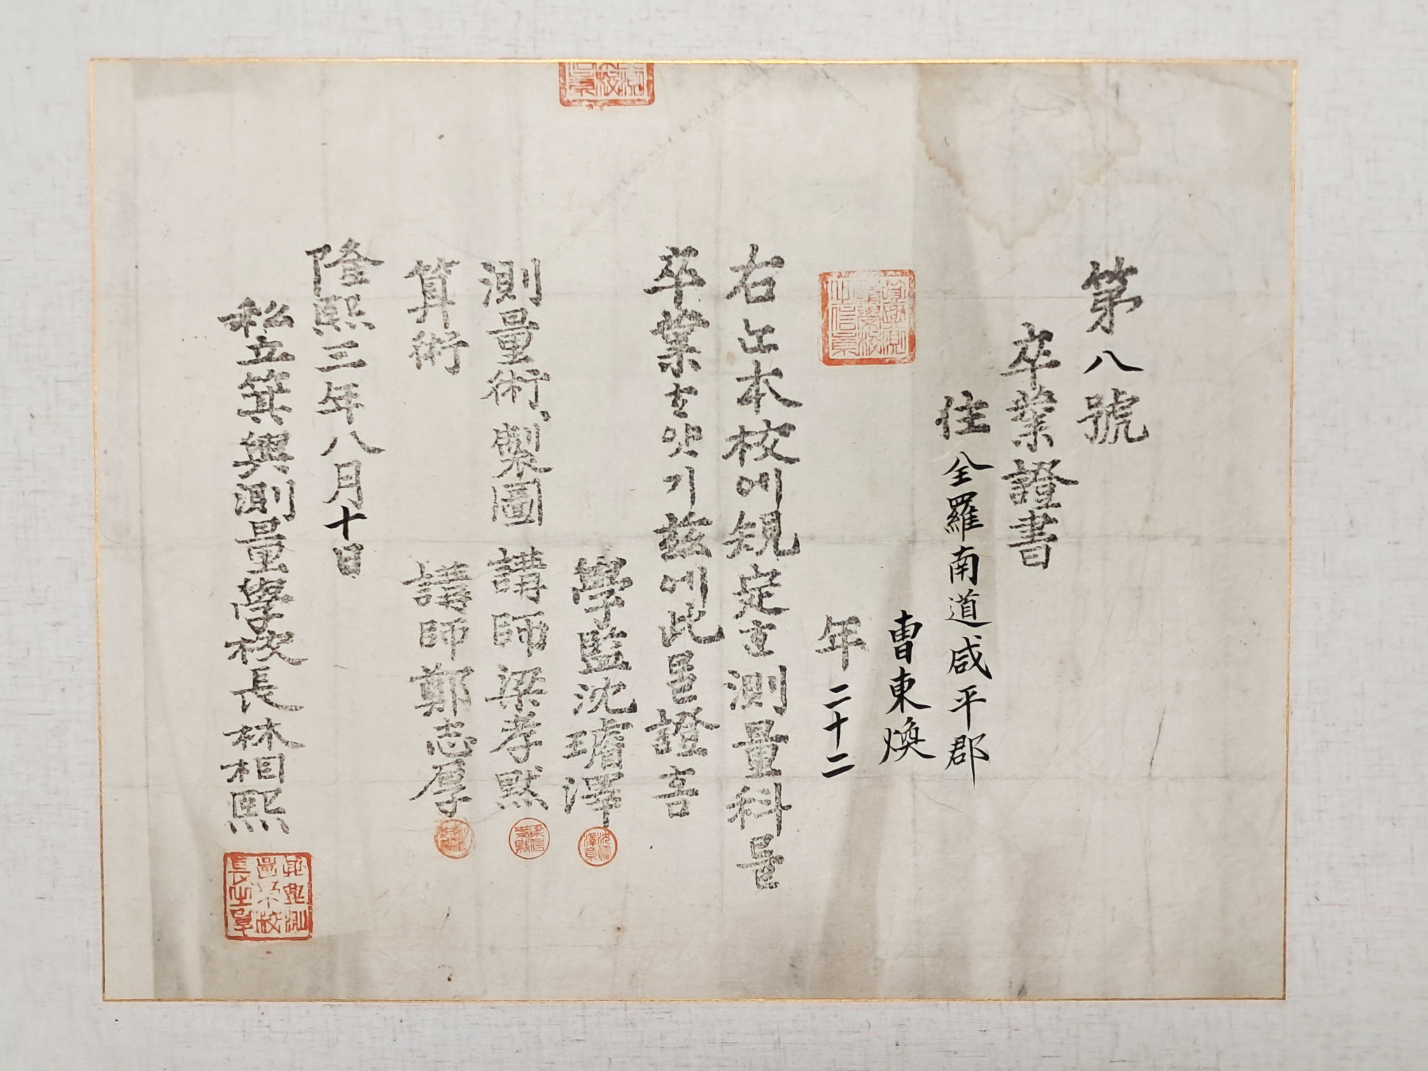 第八號
卒業證書
住 全羅南道咸平郡
曺東煥
年 二十二
右는本校에規定ᄒᆞᆫ測量科를
卒業ᄒᆞ얏기玆에此를證홈
學監沈璿澤
測量術、製圖 講師梁孝默
算術 講師鄭志厚
隆熙三年八月十日
私立箕興測量學校長林相熙